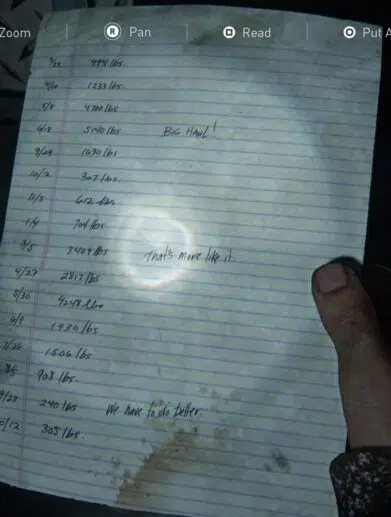 Zoom R Pan Read Put A
3/23 494 lbs.
4/10 1233 lbs.
5/8 4700 lbs
6/18 5140 lbs BIG HAUL!
9/29 1630 lbs
10/2 307 lbs.
11/5 612 lbs
1/9 704 lbs
3/5 3409 lbs That's more like it.
4/27 2817 lbs
5/30 4248 lbs
6/9 1930 lbs
7/26 1506 lbs
908 lbs
9/28 240 lbs We have to do better.
0/12 305 lbs.